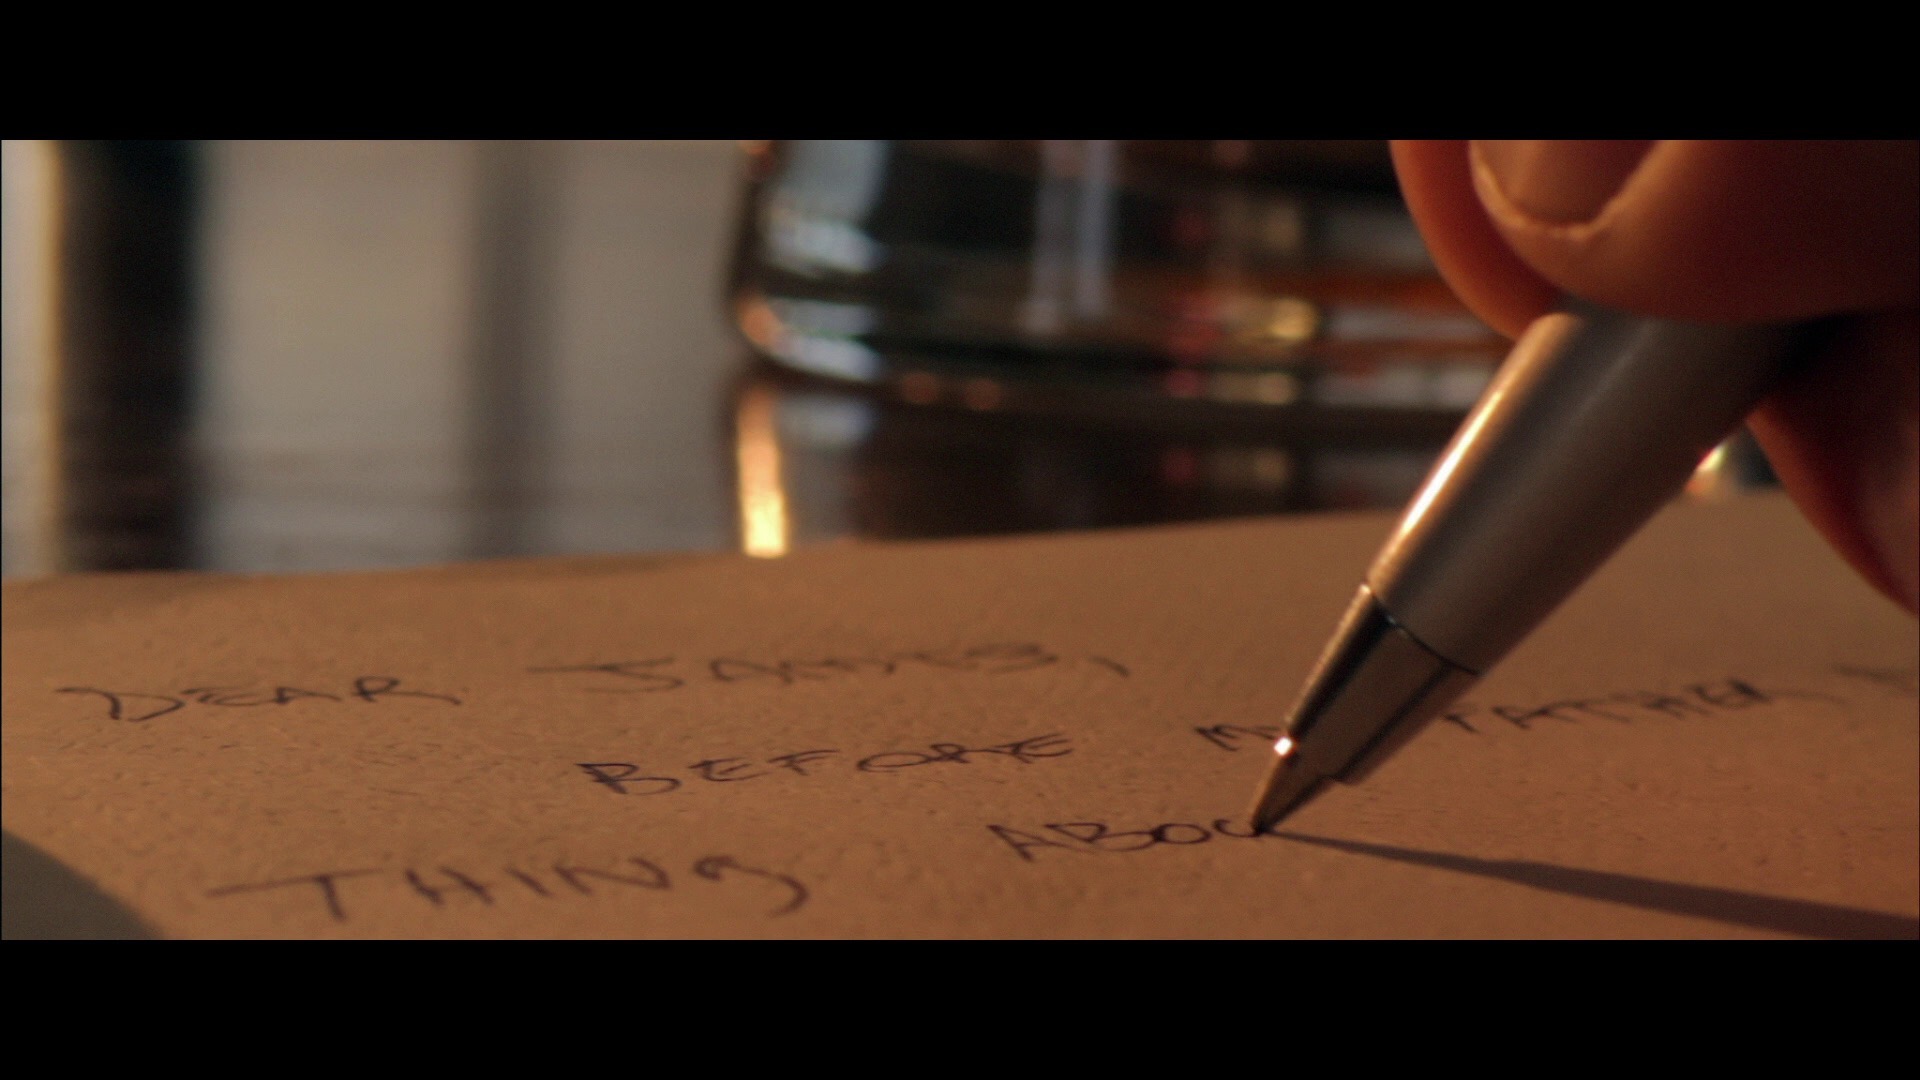 DEAR JAMES,
BEFORE M FATHER,
THING ABOU